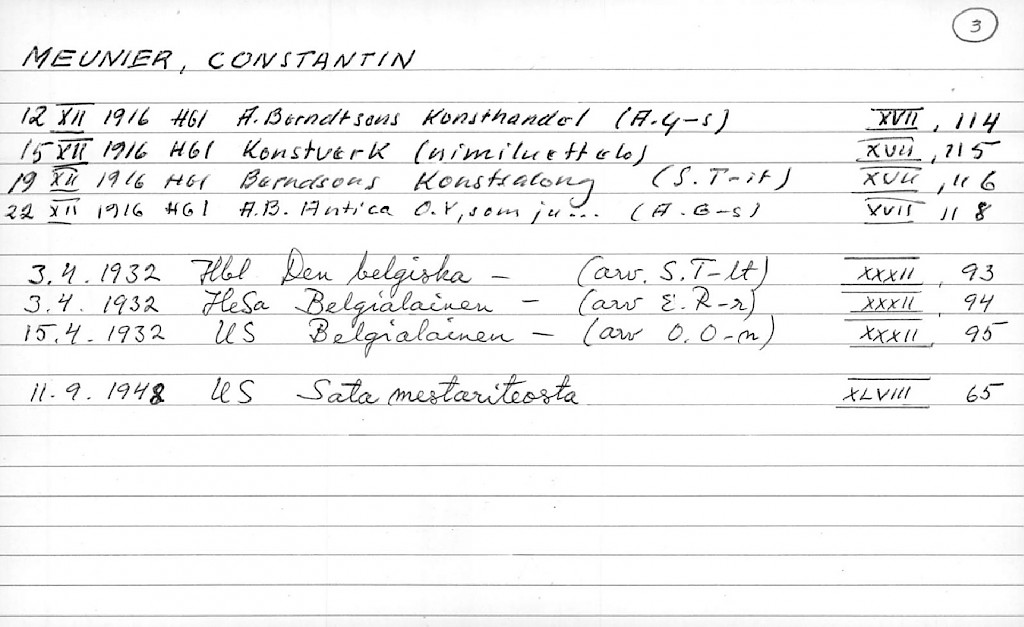 3
MEUNIER, CONSTANTIN
12 XII 1916 Hbl A. Berndtsons Konsthandel (A.G-s) XVII, 114
15 XII 1916 Hbl Konstverk (nimiluettelo) XVII, 115
19 XII 1916 Hbl Berndsons Konstsalong (S.T-it) XVII, 116
22 XII 1916 Hbl A.B. Antica O.Y, som ju... (A.G-s) XVII 118
3.4.1932 Hbl Den belgiska - (arv. S.T-lt) XXXII, 93
3.4.1932 HeSa Belgialainen - (arv E.R-r) XXXII, 94
15.4.1932 US Belgialainen - (arv O.O-n) XXXII, 95
11.9.1948 US Sata mestariteosta XLVIII 65